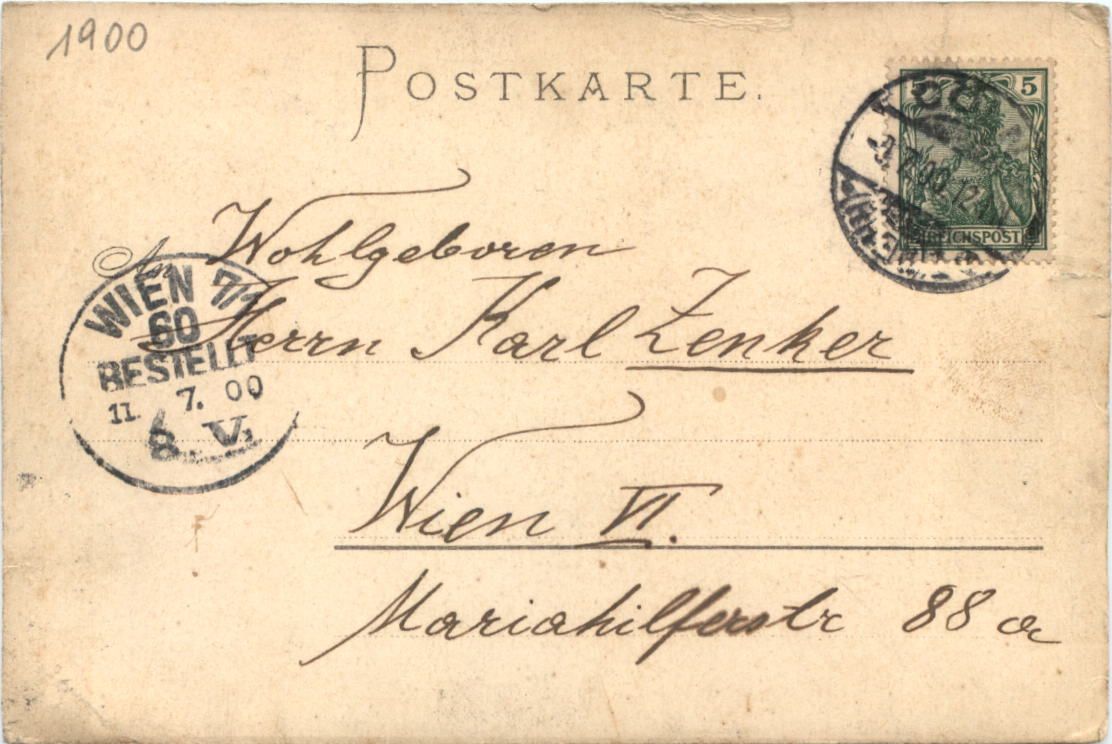 1900
POSTKARTE.
5 5
REICHSPOST
An
Wohlgeboren
Herrn Karl Zenker
WIEN 7/1
60
BESTELLT
11. 7. 00
8. V.
Wien VI.
Mariahilferstr 88 a